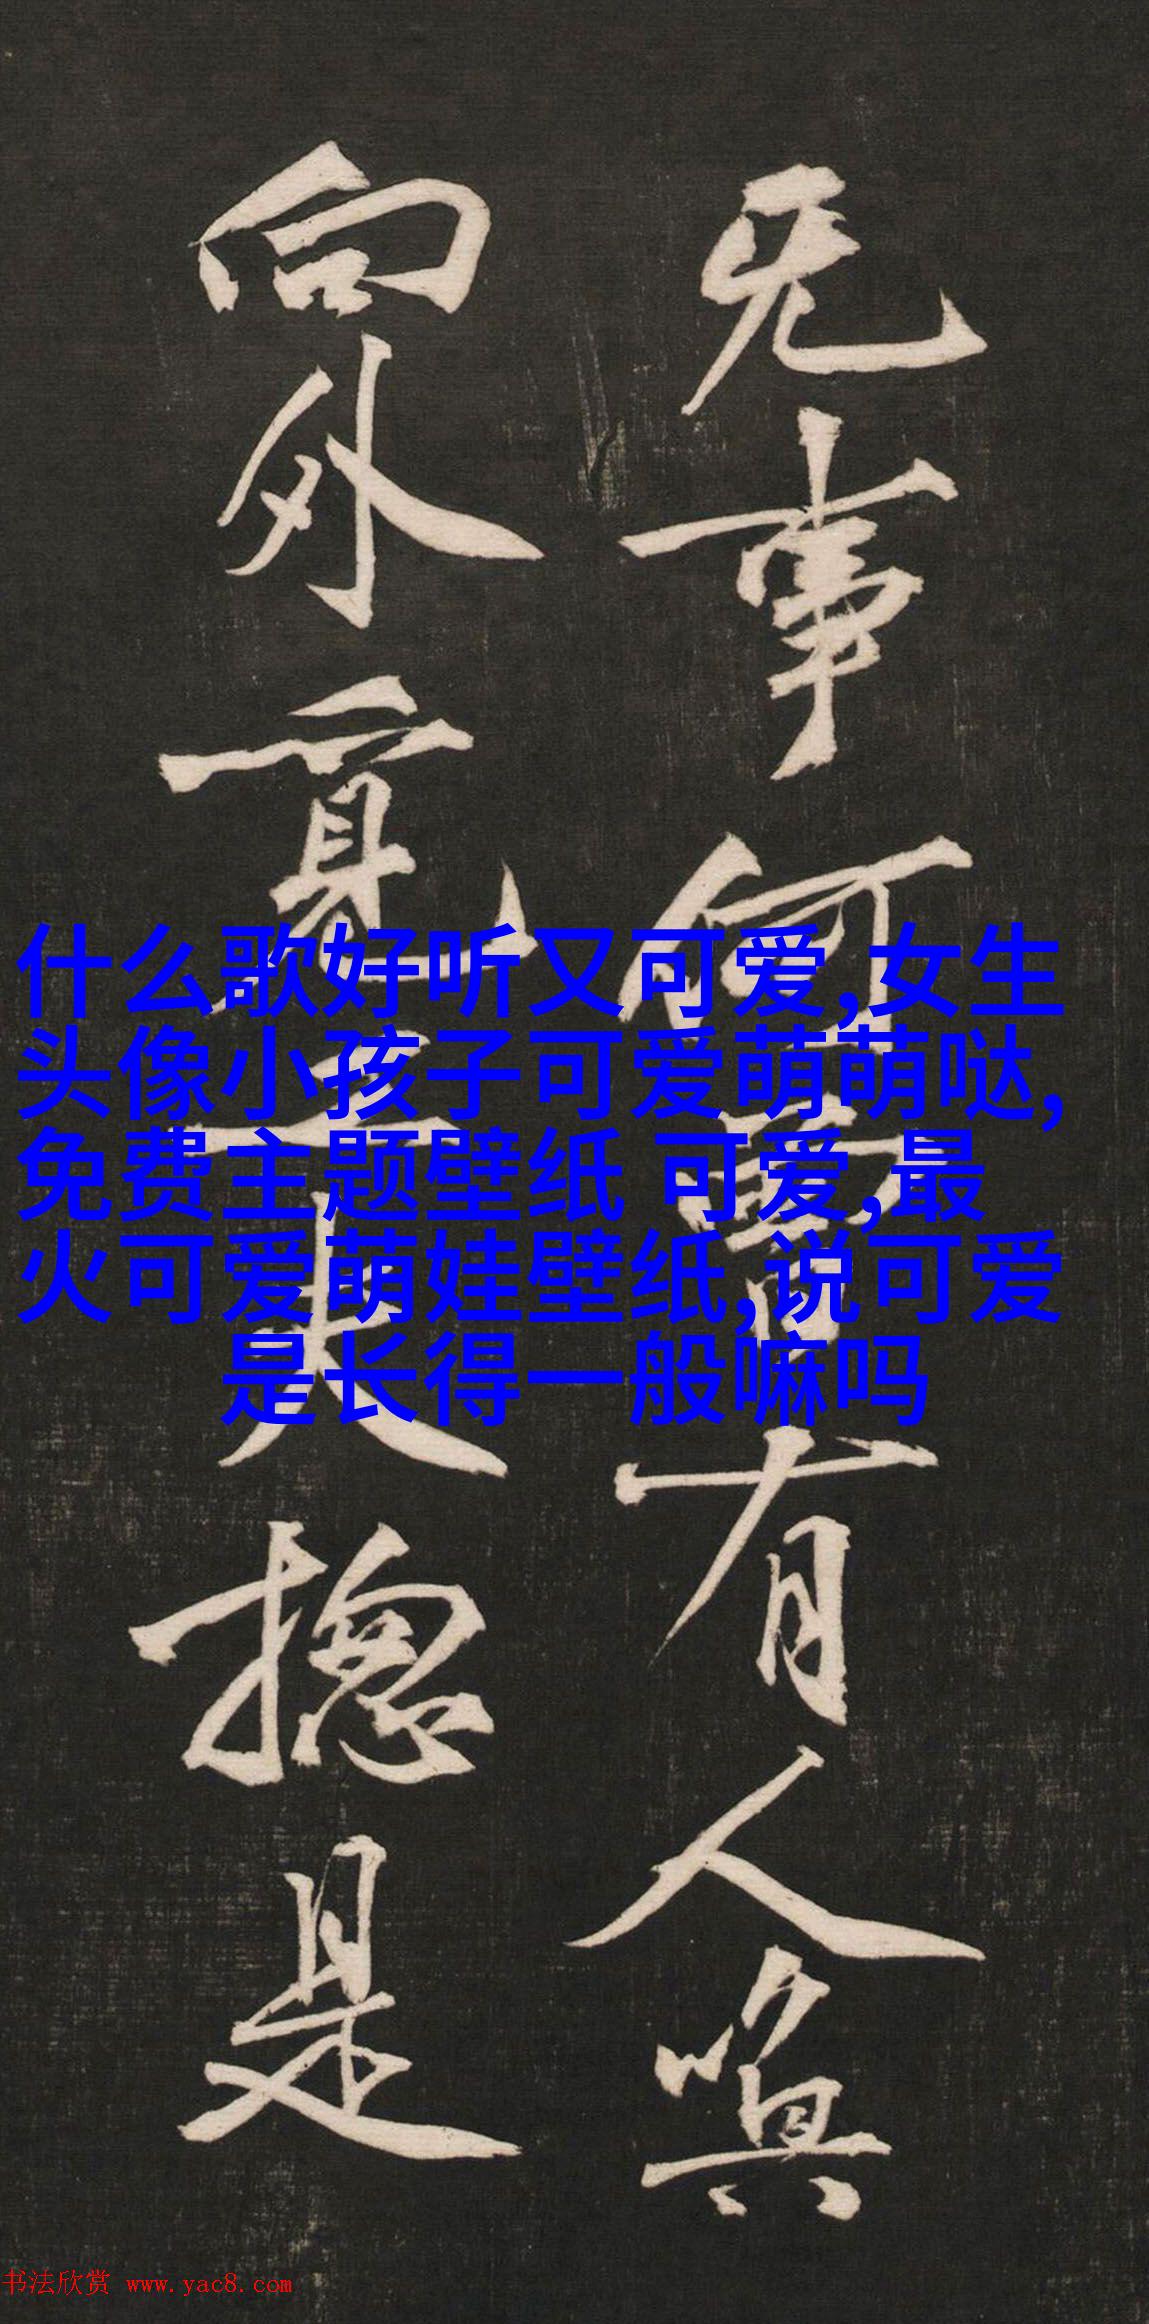 旡事何曾有人喚
向外覓工夫揔是
什么歌好听又可爱,女生
头像小孩子可爱萌萌哒,
免费主题壁纸 可爱,最
火可爱萌娃壁纸,说可爱
是长得一般嘛吗
书法欣赏 www.yac8.com